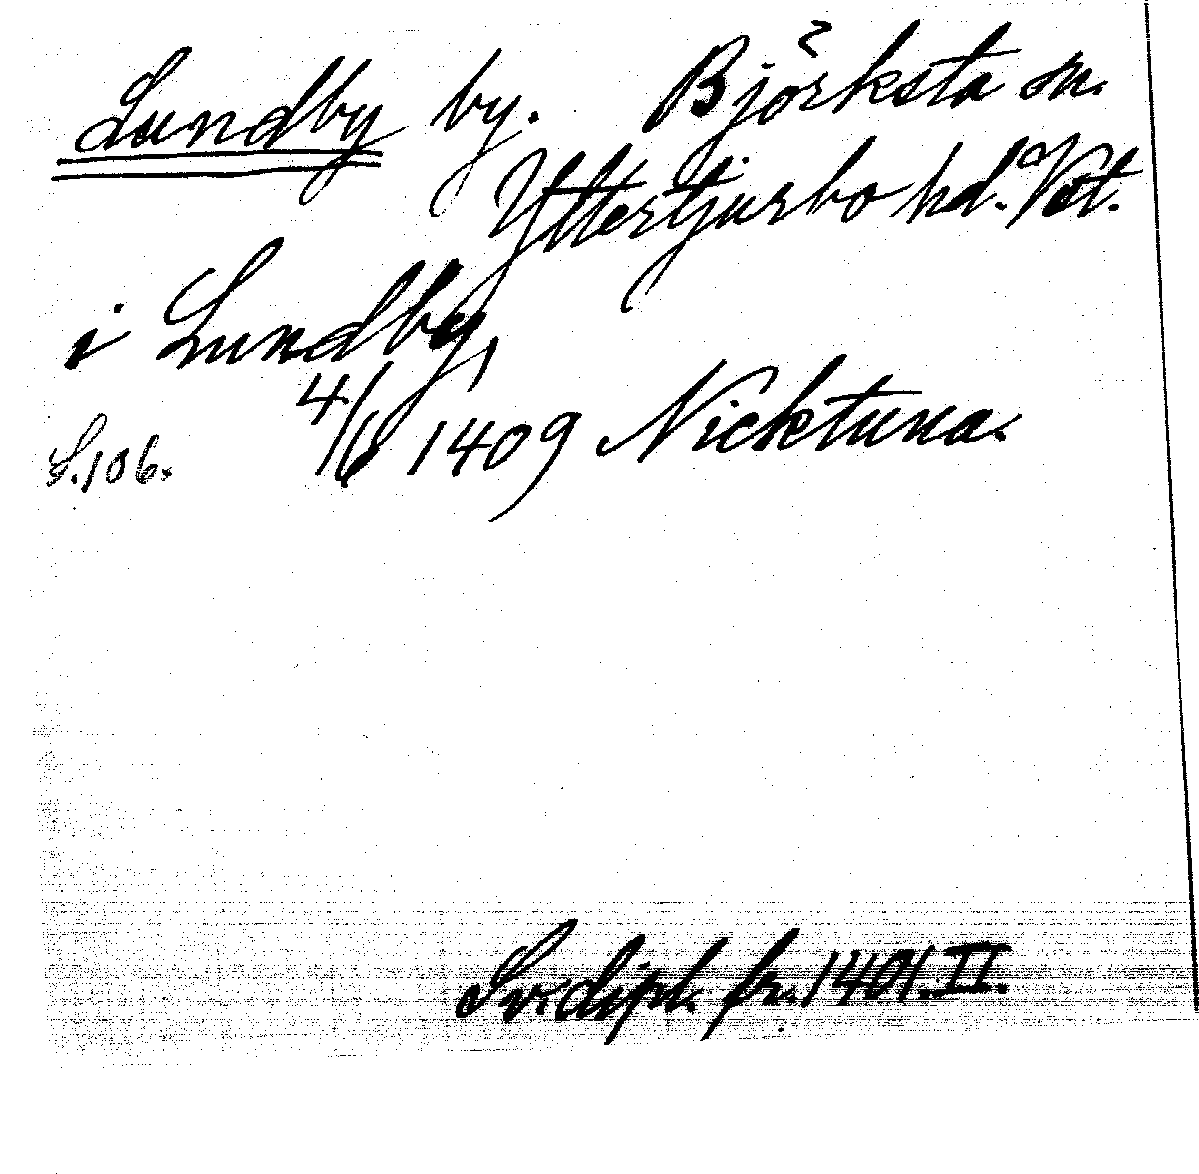 Lundby by. Björksta sn.
Yttertjurbo hd. Vstm.
i Lundby,
4/6 1409 Nicktuna.
S. 106.
Sv. dipl. fr. 1401. II.